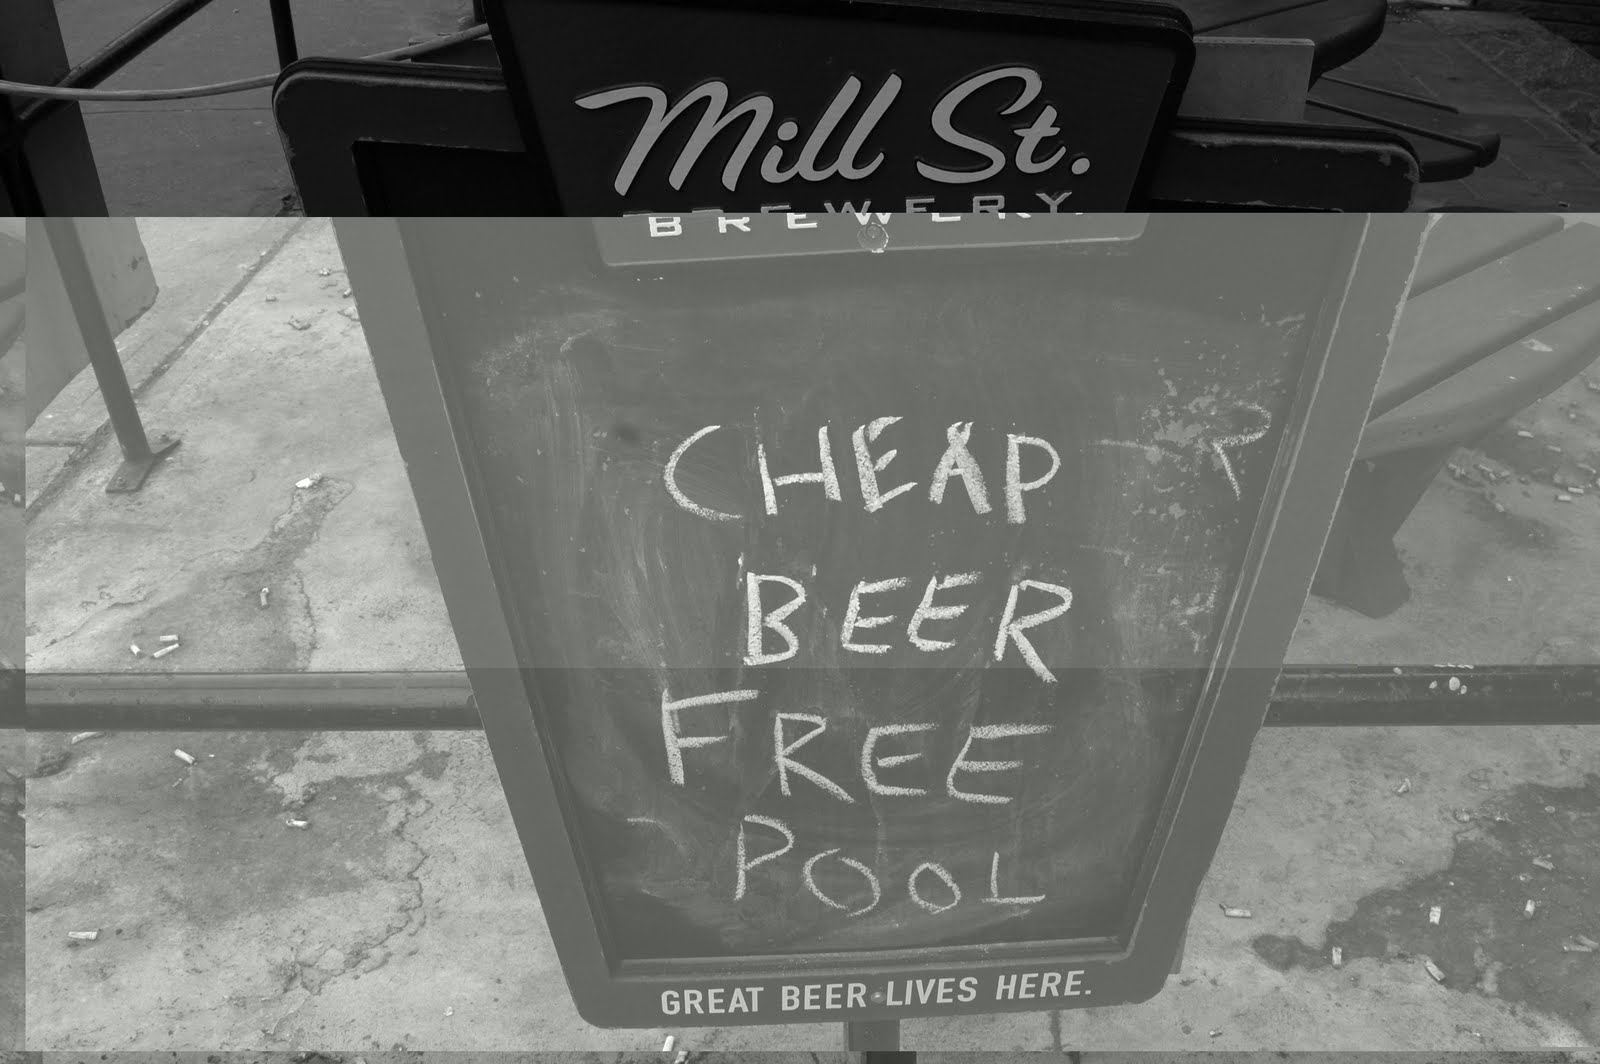 Mill St.
BREWERY.
CHEAP
BEER
FREE
POOL
GREAT BEER LIVES HERE.